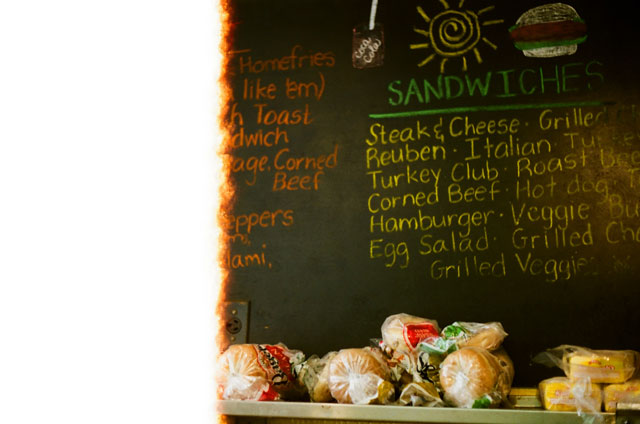 Homefries
like 'em)
Toast
Corned
Beef
SANDWICHES
Steak & Cheese · Grilled
Reuben · Italian ·
Turkey Club · Roast Beef
Corned Beef · Hot dog
Hamburger · Veggie
Egg Salad · Grilled
Grilled Veggie